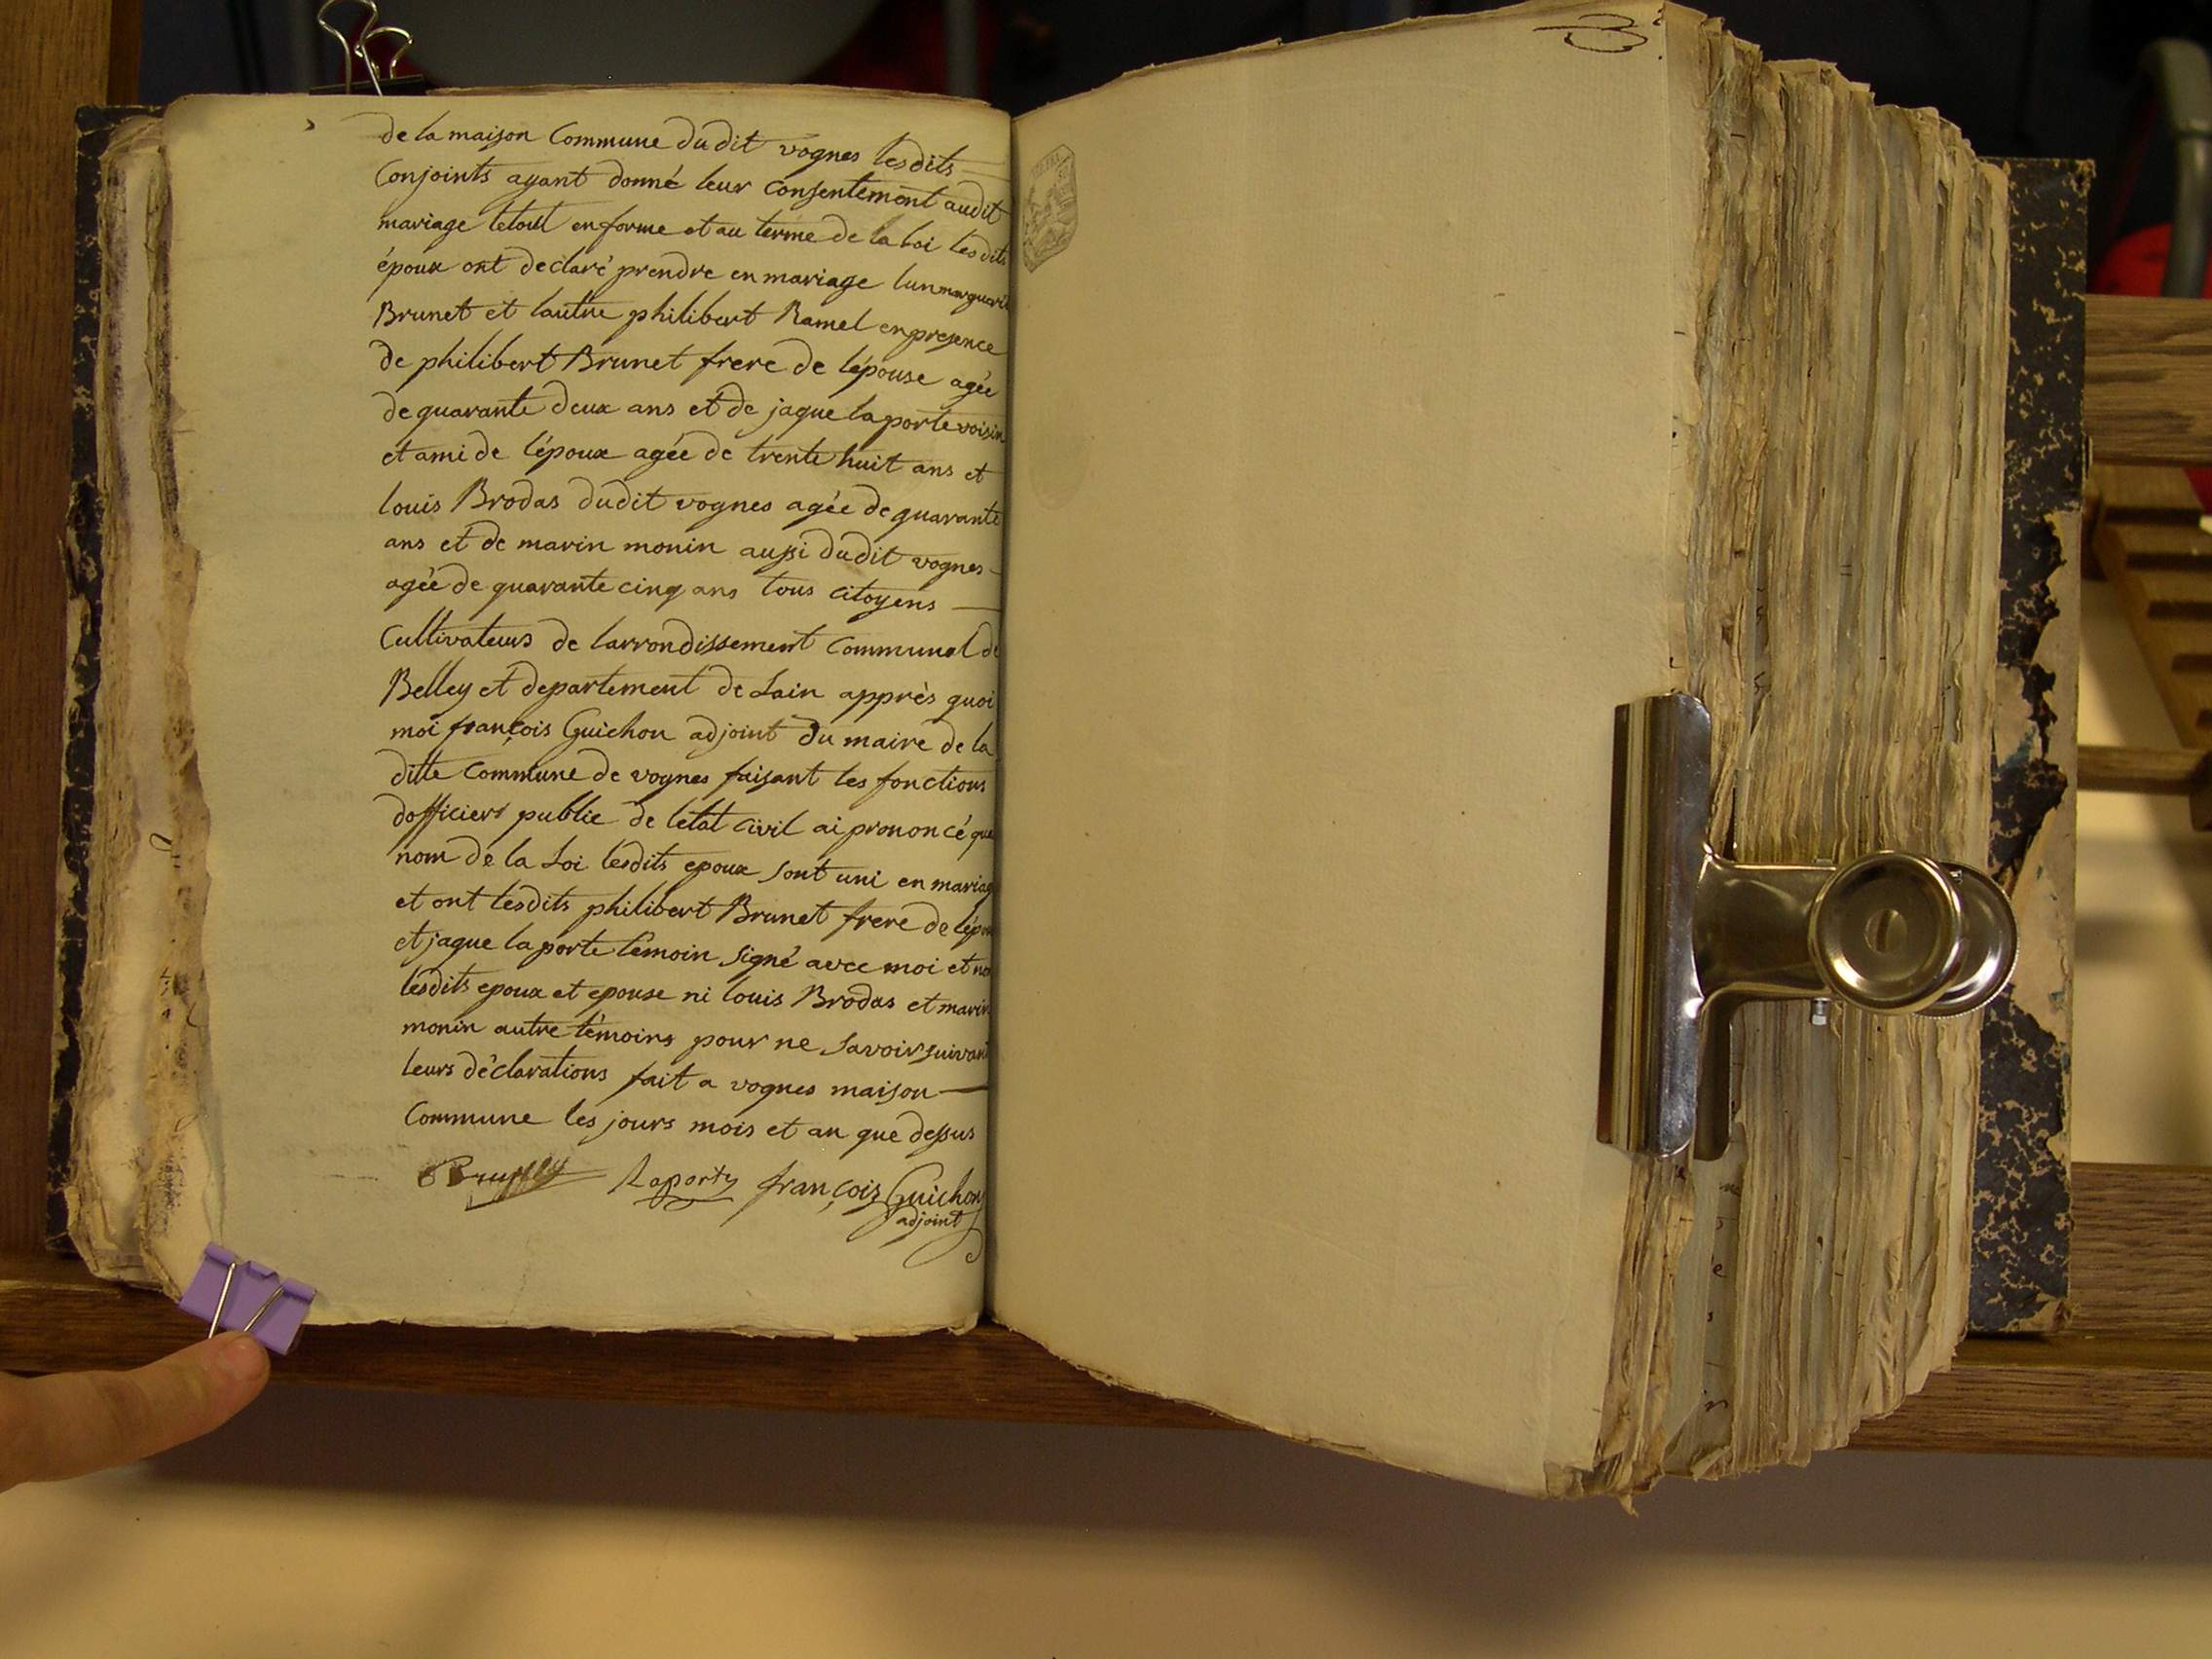 de la maison Commune dudit vognes lesdits
Conjoints ayant donné leur consentement audit
mariage letout enforme et au terme de la loi lesdits
époux ont declaré prendre en mariage lun marguerit
Brunet et lautre philibert Ramel enpresence
de philibert Brunet frere de lépouse agée
de quarante deux ans et de jaque laporte voisin
et ami de l'époux agée de trente huit ans et
louis Brodas dudit vognes agée de quarante
ans et de marin monin aussi dudit vognes
agée de quarante cinq ans tous citoyens
Cultivateurs de larrondissement Communal de
Belley et departement de Lain apprès quoi
moi françois Guichon adjoint du maire de la
ditte Commune de vognes faisant les fonctions
dofficiers public de letat civil ai prononcé que
nom de la Loi lesdits epoux sont uni en mariag
et ont lesdits philibert Brunet frere de lépou
et jaque laporte témoin signé avec moi et no
lesdits epoux et epouse ni louis Brodas et marin
monin autre témoins pour ne savoir suivant
leurs déclarations fait a vognes maison
Commune les jours mois et an que dessus
Laporte françois Guichon
adjoint